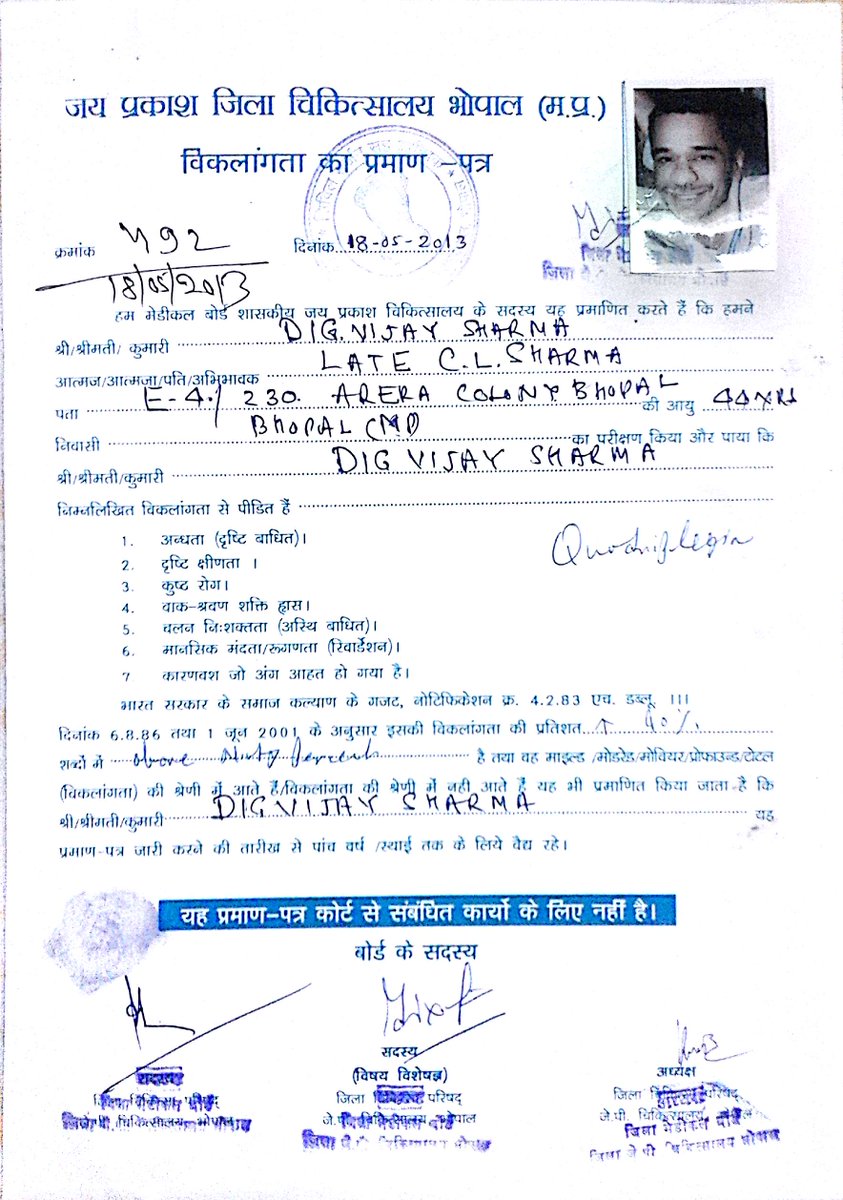 जय प्रकाश जिला चिकित्सालय भोपाल (म.प्र.)
विकलांगता का प्रमाण-पत्र
क्रमांक 492 दिनांक 18-05-2013
18/05/2013
हम मेडीकल बोर्ड शासकीय जय प्रकाश चिकित्सालय के सदस्य यह प्रमाणित करते हैं कि हमने
श्री/श्रीमती/ कुमारी DIG.VIJAY SHARMA
आत्मज/आत्मजा/पति/अभिभावक LATE C.L. SHARMA
पता E-4/230. ARERA COLONY BHOPAL की आयु 44 YRS
निवासी BHOPAL का परीक्षण किया और पाया कि
श्री/श्रीमती/कुमारी DIG VIJAY SHARMA
निम्नलिखित विकलांगता से पीडित हैं
1. अन्धता (दृष्टि बाधित)।
Quadriplegia
2. दृष्टि क्षीणता ।
3. कुष्ट रोग।
4. वाक-श्रवण शक्ति ह्रास।
5. चलन निःशक्तता (अस्थि बाधित)।
6. मानसिक मंदता/रूगणता (रिवार्डेशन)।
7 कारणवश जो अंग आहत हो गया है।
भारत सरकार के समाज कल्याण के गजट, नोटिफिकेशन क्र. 4.2.83 एच. डब्लू. ।।।
दिनांक 6.8.86 तथा 1 जून 2001 के अनुसार इसकी विकलांगता की प्रतिशत ↑ 90%
शब्दों में above Ninty Percent है तथा वह माइल्ड /मोडरेड/मोवियर/प्रोफाउन्ड/टोटल
(विकलांगता) की श्रेणी में आते हैं/विकलांगता की श्रेणी में नही आते हैं यह भी प्रमाणित किया जाता है कि
श्री/श्रीमती/कुमारी DIGVIJAY SHARMA यह
प्रमाण-पत्र जारी करने की तारीख से पांच वर्ष /स्थाई तक के लिये वैद्य रहे।
यह प्रमाण-पत्र कोर्ट से संबंधित कार्यो के लिए नहीं है।
बोर्ड के सदस्य
सदस्य
(विषय विशेषज्ञ)
जिला परिषद्
जे.पी. चिकित्सालय भोपाल
अध्यक्ष
जिला परिषद्
जे.पी.
जिला मेडीकल बोर्ड
जिला जे.पी. चिकित्सालय भोपाल